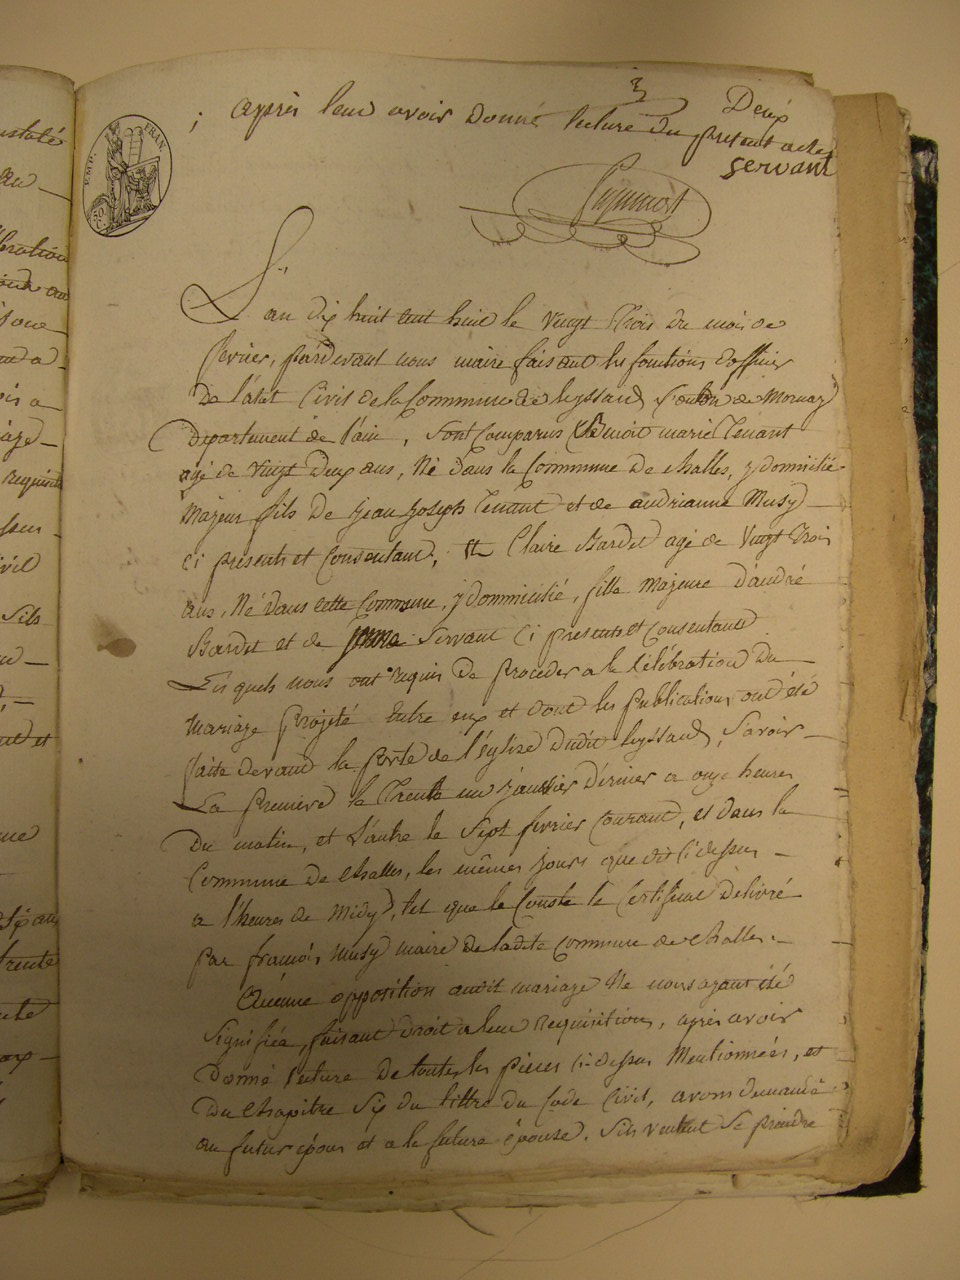 3
Deux
; après leur avoir donné lecture du présent acte
servant
EMP. FRAN.
50 C.
L'an dix huit cent huit le vingt trois du mois de
fevrier, pardevant nous maire faisant les fonctions d'officier
de l'état civil de la Commune de leyssard, Canton de
département de l'ain, sont comparus Benoit marie Tenant
agé de vingt deux ans, Né dans la Commune de challes, y domicilié
majeur fils de jean joseph Tenant et de andrianne Musy
ci présents et consentans, et Claire Bardet agé de vingt trois
ans, Né dans cette Commune, y domicilié, fille majeure d'andré
Bardet et de servant ci présents et consentants
Lesquels nous ont requis de procéder a la célébration du
mariage projeté entre eux et dont les publications ont été
faite devant la porte de l'église dudit leyssard, Savoir
La première le Trente un janvier dernier a onze heures
du matin, et l'autre le sept fevrier courant, et dans la
Commune de challes, les mêmes jours que dit ci dessus
a l'heures de midy, tel que le conste le certificat délivré
par françois musy maire de ladite commune de challes.
Aucune opposition audit mariage Ne nous ayant été
Signifiée, faisant droit a leur requisition, après avoir
donné lecture de toutes les pièces ci dessus mentionnées, et
du chapitre six du tittre du code civil, avons demandé
au futur époux et a la future épouse, s'ils veulent se prendre